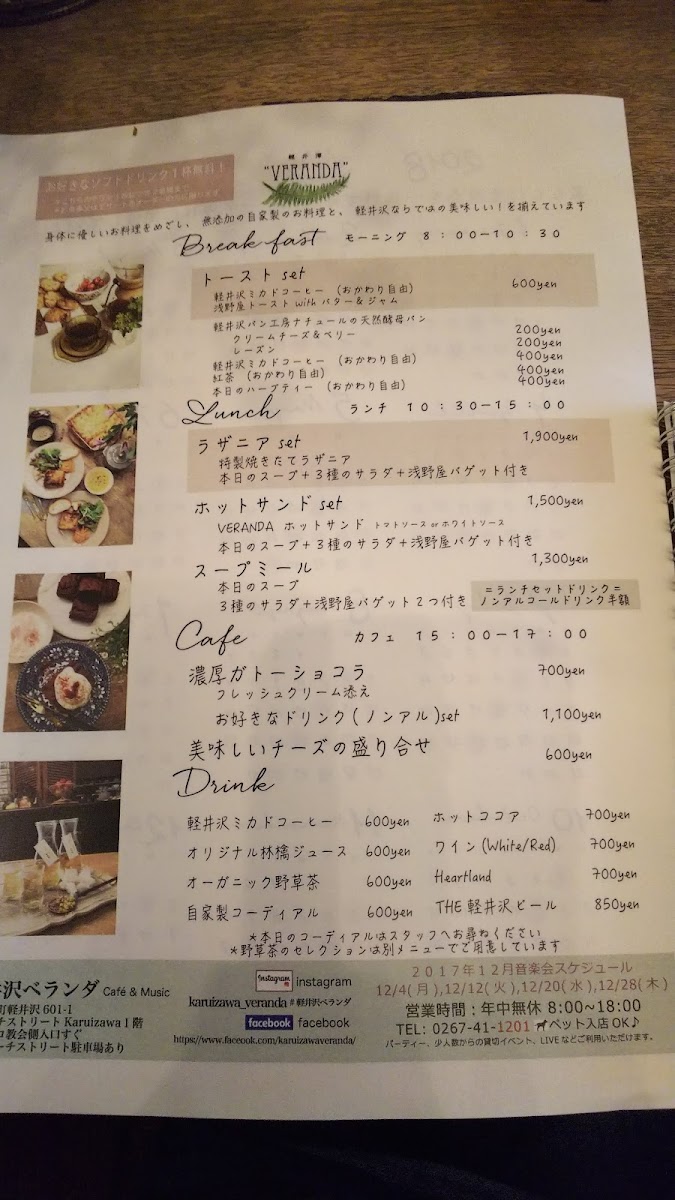 お好きなソフトドリンク1杯無料！
軽井澤
"VERANDA"
身体に優しいお料理をめざし、無添加の自家製のお料理と、軽井沢ならではの美味しい！を揃えています
Breakfast モーニング 8：00ー10：30
トースト set 600yen
軽井沢ミカドコーヒー （おかわり自由）
浅野屋トースト with バター＆ジャム
軽井沢パン工房ナチュールの天然酵母パン
クリームチーズ＆ベリー 200yen
レーズン 200yen
軽井沢ミカドコーヒー （おかわり自由） 400yen
紅茶 （おかわり自由） 400yen
本日のハーブティー （おかわり自由） 400yen
Lunch ランチ 10：30ー15：00
ラザニア set 1,900yen
特製焼きたてラザニア
本日のスープ＋3種のサラダ＋浅野屋バゲット付き
ホットサンド set 1,500yen
VERANDA ホットサンド トマトソース or ホワイトソース
本日のスープ＋3種のサラダ＋浅野屋バゲット付き
スープミール 1,300yen
本日のスープ
3種のサラダ＋浅野屋バゲット2つ付き
＝ランチセットドリンク＝
ノンアルコールドリンク半額
Cafe カフェ 15：00ー17：00
濃厚ガトーショコラ 700yen
フレッシュクリーム添え
お好きなドリンク(ノンアル)set 1,100yen
美味しいチーズの盛り合せ 600yen
Drink
軽井沢ミカドコーヒー 600yen
オリジナル林檎ジュース 600yen
オーガニック野草茶 600yen
自家製コーディアル 600yen
ホットココア 700yen
ワイン(White/Red) 700yen
Heartland 700yen
THE 軽井沢ビール 850yen
＊本日のコーディアルはスタッフへお尋ねください
＊野草茶のセレクションは別メニューでご用意しています
井沢ベランダ Café & Music
町軽井沢 601-1
チストリート Karuizawa 1 階
ロ教会側入口すぐ
ーチストリート駐車場あり
Instagram instagram
karuizawa_veranda # 軽井沢ベランダ
facebook facebook
https://www.faceook.com/karuizawaveranda/
2017年12月音楽会スケジュール
12/4(月),12/12(火),12/20(水),12/28(木)
営業時間：年中無休 8:00~18:00
TEL: 0267-41-1201 ペット入店 OK♪
パーティー、少人数からの貸切イベント、LIVE などご利用いただけます。